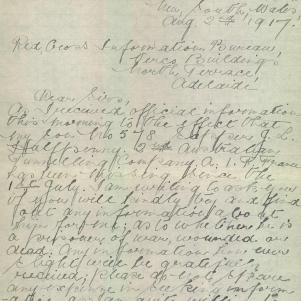 New South Wales
Aug 2nd 1917.
Red Cross Information Bureau,
Verco Buildings
North Terrace,
Adelaide
Dear Sirs,
As I received official information
this morning to the effect that
my son No 578 Sapper J. L.
Halfpenny 2nd Australian
Tunnelling Company A. I. F. France
has been missing since the
July. I am writing to ask you
if you will kindly try and find
out any information about
him for me, as to whether he is
a prisoner of war, wounded or
dead. Any information
will be gratefully
received; please do not spare
any expense in seeking inform